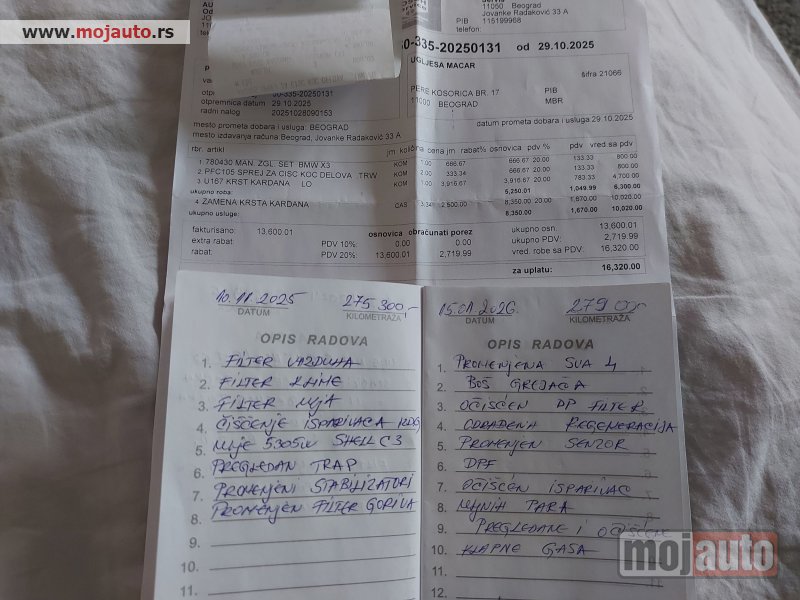 www.mojauto.rs
11050 Beograd
Jovanke Radaković 33 A
PIB 115199968
-335-20250131 od 29.10.2025
UGLJESA MACAR
šifra 21066
PERE KOSORICA BR. 17 PIB
11000 BEOGRAD MBR
otpremnica datum 29.10.2025
radni nalog 20251028090153
datum prometa dobara i usluga 29.10.2025
mesto prometa dobara i usluga: BEOGRAD
mesto izdavanja računa:Beograd, Jovanke Radaković 33 A
rbr. artikl jm količina cena jm rabat% osnovica pdv % pdv vred sa pdv
1. 780430 MAN. ZGL. SET BMW X3 KOM 1.00 666.67 666.67 20.00 133.33 800.00
2. PFC105 SPREJ ZA CISC KOC DELOVA TRW KOM 2.00 333.34 666.67 20.00 133.33 800.00
3. U167 KRST KARDANA LO KOM 1.00 3,916.67 3,916.67 20.00 783.33 4,700.00
ukupno roba: 5,250.01 1,049.99 6,300.00
4. ZAMENA KRSTA KARDANA CAS 3.34 2,500.00 8,350.00 20.00 1,670.00 10,020.00
ukupno usluge: 8,350.00 1,670.00 10,020.00
osnovica obračunati porez
fakturisano: 13,600.01
extra rabat: PDV 10%: 0.00 0.00
rabat: PDV 20% 13,600.01 2,719.99
ukupno osn. 13,600.01
ukupno PDV: 2,719.99
vred. robe sa PDV: 16,320.00
za uplatu: 16,320.00
10.11.2025 275.300,-
DATUM KILOMETRAŽA
OPIS RADOVA
1. FILTER VAZDUHA
2. FILTER KLIME
3. FILTER ULJA
4. ČIŠĆENJE ISPARIVAČA
5. ULJE SHELL C3
6. PREGLEDAN TRAP
7. PROMENJENI STABILIZATORI
8. PROMENJEN FILTER GORIVA
9.
10.
11.
15.01.2026.
DATUM KILOMETRAŽA
OPIS RADOVA
1. PROMENJENA SVA 4
2. BOŠ GREJAČA
3. OČIŠĆEN DP FILTER
4. ODRAĐENA REGENERACIJA
5. PROMENJEN SENZOR
6. DPF
7. OČIŠĆEN ISPARIVAC
8. ULJNIH PARA
9. PREGLEDANE I OČIŠĆENE
10. KLAPNE GASA
11.
12.
mojauto